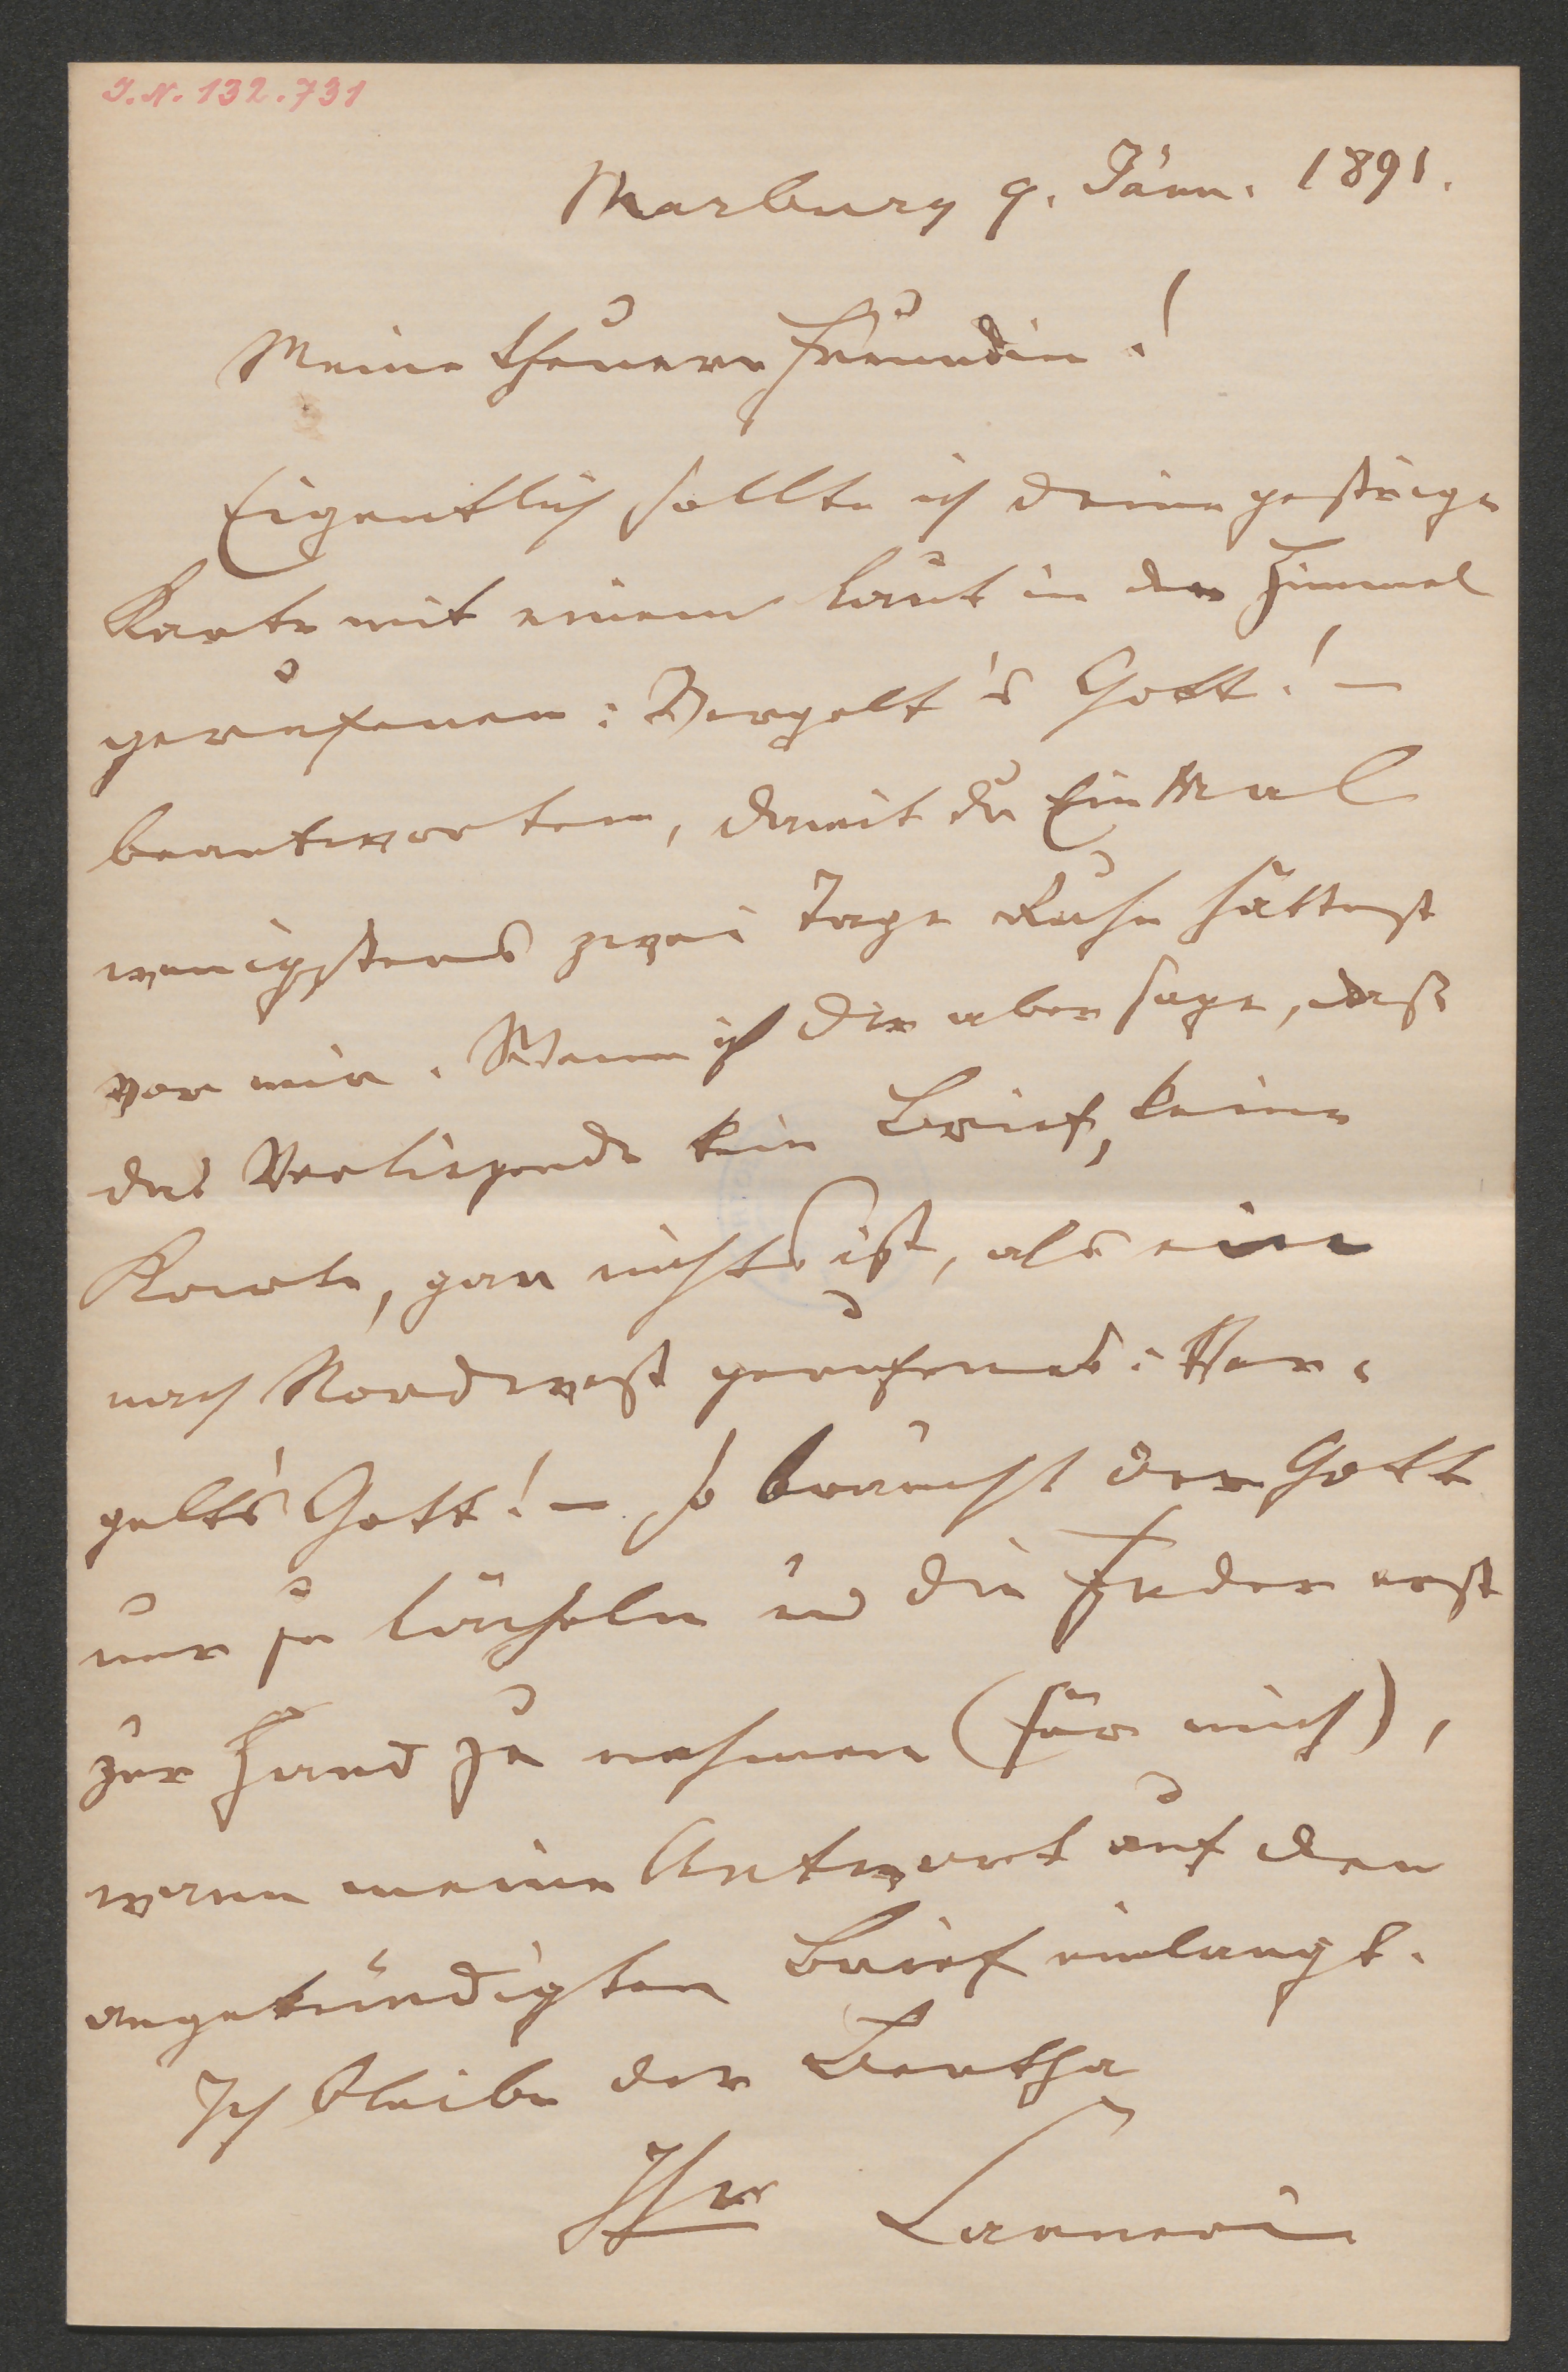 I.N. 132.731
Marburg 9. Jänn. 1891.
Meine theuere Freundin!
Eigentlich sollte ich deine gestrige
Karte mit einem laut in den Himmel
gerufenen: Vergelt's Gott! –
beantworten, damit du Ein Mal
wenigstens zwei Tage Ruhe hättest
vor mir. Wenn ich dir aber sage, daß
das Vorliegende kein Brief, keine
Karte, gar nichts ist, als ein
nach Nordwest gerufenes: Ver-
gelts Gott! – so brauchst der Gott
nur zu lächeln und die Feder erst
zur Hand zu nehmen (für mich),
wenn meine Antwort auf den
angekündigten Brief einlangt.
Ich bleibe der Bertha
Ihr Carneri